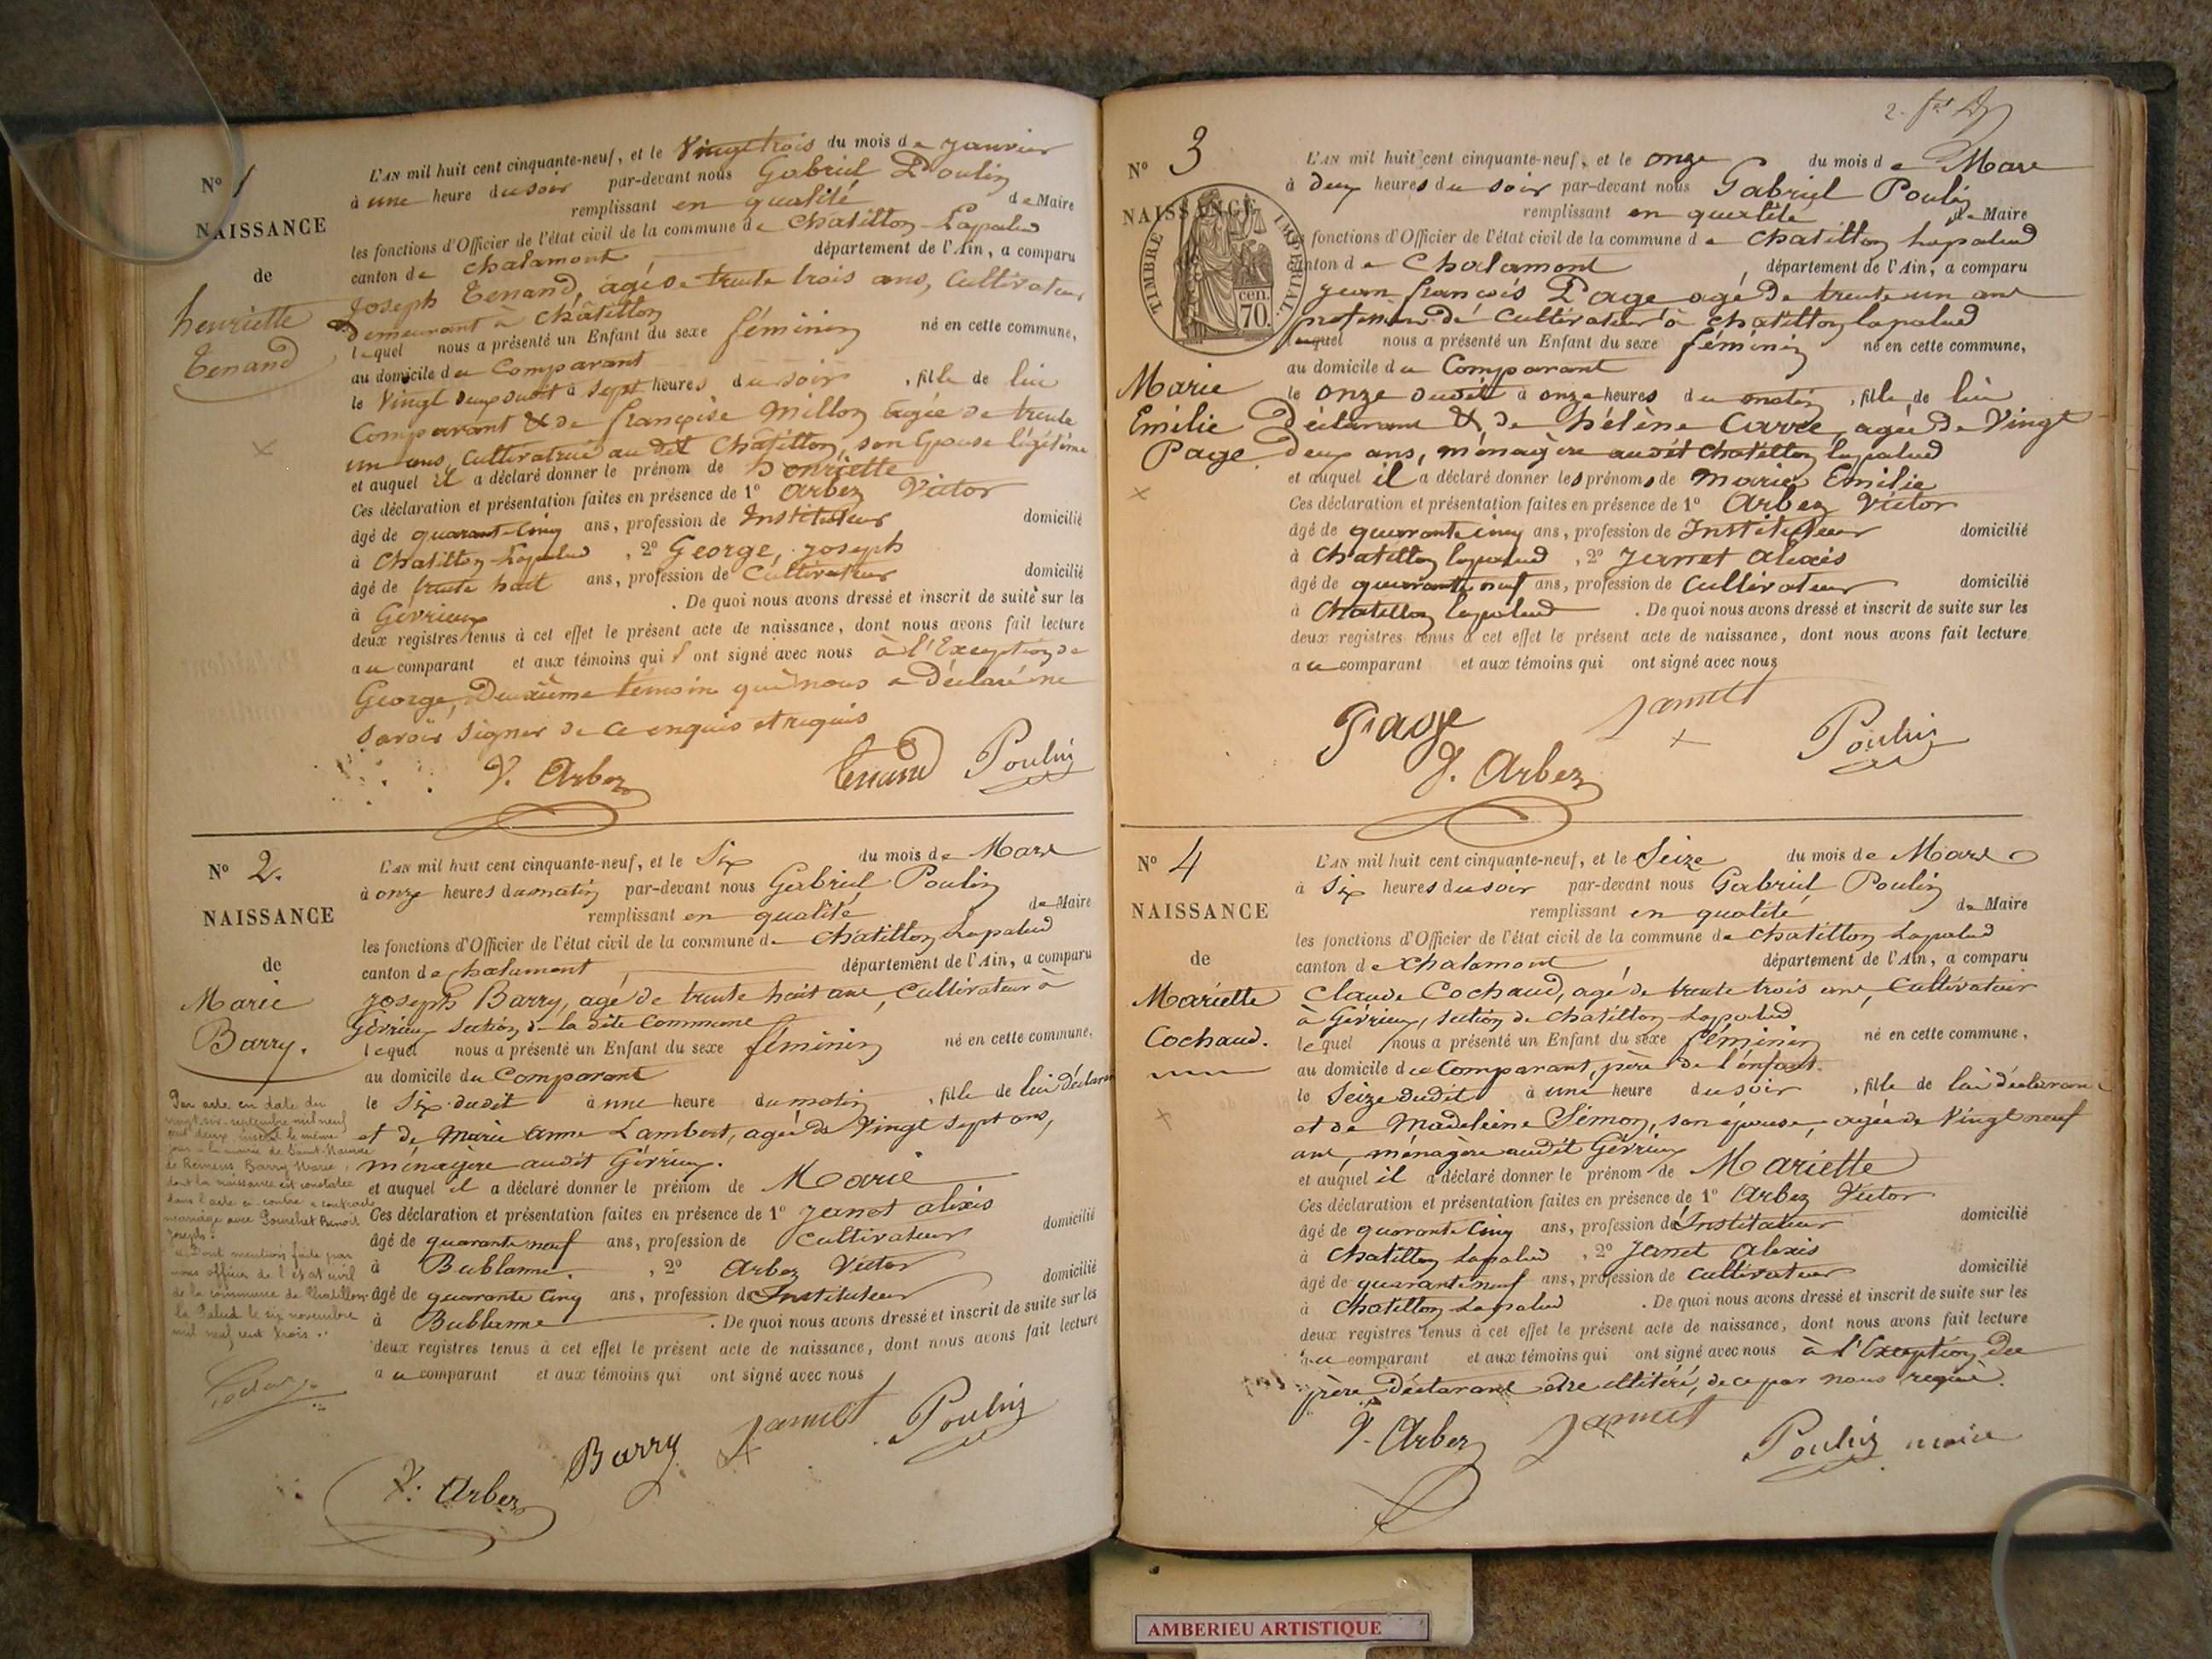 N° 1
NAISSANCE
de
henriette
Tenand
L'AN mil huit cent cinquante-neuf, et le Vingt trois du mois de janvier
à une heure du soir par-devant nous Gabriel Poulin
remplissant en qualité de Maire
les fonctions d'Officier de l'état civil de la commune de Chatillon-Lapalud
canton de Chalamont, département de l'Ain, a comparu
Joseph Tenand, agé de trente trois ans, Cultivateur
Demeurant à Châtillon
lequel nous a présenté un Enfant du sexe féminin né en cette commune,
au domicile du Comparant
le Vingt deux dudit à sept heures du soir, fille de lui
Comparant & de françoise Millon agée de trente
un ans, Cultivatrice au dit Chatillon, son Epouse légitime
et auquel il a déclaré donner le prénom de henriette
Ces déclaration et présentation faites en présence de 1° Arbez Victor
âgé de quarante Cinq ans, profession de Instituteur domicilié
à Chatillon-Lapalud, 2° George, joseph
âgé de trente huit ans, profession de Cultivateur domicilié
à Gévrieux. De quoi nous avons dressé et inscrit de suite sur les
deux registres tenus à cet effet le présent acte de naissance, dont nous avons fait lecture
au comparant et aux témoins qui ont signé avec nous à l'Exception de
George, Deuxième témoin qui nous a Déclaré ne
savoir signer de ce enquis et requis
V. Arbez Tenand Poulin
N° 2.
NAISSANCE
de
Marie
Barry.
Par acte en date du
vingt six septembre mil neuf
cent deux inscrit le même
jour à la mairie de Saint-Maurice
de Rémens, Barry Marie,
dont la naissance est constatée
dans l'acte ci-contre a contracté
mariage avec Pourchet Benoit
Joseph.
Dont mention faite par
nous officier de l'état civil
de la commune de Chatillon-
la Palud le six novembre
mil neuf cent trois.
L'AN mil huit cent cinquante-neuf, et le Six du mois de Mars
à onze heures du matin par-devant nous Gabriel Poulin
remplissant en qualité de Maire
les fonctions d'Officier de l'état civil de la commune de Châtillon Lapalud
canton de Chalamont, département de l'Ain, a comparu
joseph Barry, agé de trente huit ans, Cultivateur à
Gévrieux section de la dite Commune
lequel nous a présenté un Enfant du sexe féminin né en cette commune,
au domicile du Comparant
le Six dudit à une heure du matin, fille de lui déclarant
et de Marie Anne Lambert, agée de Vingt sept ans,
ménagère audit Gévrieux.
et auquel il a déclaré donner le prénom de Marie
Ces déclaration et présentation faites en présence de 1° Janet alexis
âgé de quarante neuf ans, profession de Cultivateur domicilié
à Bublanne, 2° Arbez Victor
âgé de quarante Cinq ans, profession de Instituteur domicilié
à Bublanne. De quoi nous avons dressé et inscrit de suite sur les
deux registres tenus à cet effet le présent acte de naissance, dont nous avons fait lecture
au comparant et aux témoins qui ont signé avec nous
V. Arbez Barry Jannet Poulin
N° 3
NAISSANCE
TIMBRE IMPERIAL
cen.
70.
Marie
Emilie
Page
L'AN mil huit cent cinquante-neuf, et le onze du mois de Mars
à deux heures du soir par-devant nous Gabriel Poulin
remplissant en qualité de Maire
les fonctions d'Officier de l'état civil de la commune de Chatillon Lapalud
canton de Chalamont, département de l'Ain, a comparu
jean françois Page agé de trente un ans
profession de Cultivateur à Chatillon lapalud
lequel nous a présenté un Enfant du sexe féminin né en cette commune,
au domicile du Comparant
le onze dudit à onze heures du matin, fille de lui
Déclarant & de hélène Carré, agée de Vingt
deux ans, ménagère audit Chatillon lapalud
et auquel il a déclaré donner les prénoms de Marie Emilie
Ces déclaration et présentation faites en présence de 1° Arbez Victor
âgé de quarante cinq ans, profession de Instituteur domicilié
à Chatillon lapalud, 2° Jannet Alexis
âgé de quarante neuf ans, profession de Cultivateur domicilié
à Chatillon lapalud. De quoi nous avons dressé et inscrit de suite sur les
deux registres tenus à cet effet le présent acte de naissance, dont nous avons fait lecture
au comparant et aux témoins qui ont signé avec nous
Page Jannet
V. Arbez Poulin
N° 4
NAISSANCE
de
Mariette
Cochaud.
L'AN mil huit cent cinquante-neuf, et le Seize du mois de Mars
à Six heures du soir par-devant nous Gabriel Poulin
remplissant en qualité de Maire
les fonctions d'Officier de l'état civil de la commune de Chatillon Lapalud
canton de Chalamont, département de l'Ain, a comparu
Claude Cochaud, agé de trente trois ans, Cultivateur
à Gévrieux, section de Chatillon-Lapalud
lequel nous a présenté un Enfant du sexe féminin né en cette commune,
au domicile du Comparant, père de l'enfant.
le Seize dudit à une heure du soir, fille de lui déclarant
et de Madeleine Simon, son épouse, agée de Vingt neuf
ans, ménagère audit Gévrieux
et auquel il a déclaré donner le prénom de Mariette
Ces déclaration et présentation faites en présence de 1° Arbez Victor
âgé de quarante Cinq ans, profession de Instituteur domicilié
à Chatillon Lapalud, 2° Janet Alexis
âgé de quarante neuf ans, profession de Cultivateur domicilié
à Chatillon Lapalud. De quoi nous avons dressé et inscrit de suite sur les
deux registres tenus à cet effet le présent acte de naissance, dont nous avons fait lecture
au comparant et aux témoins qui ont signé avec nous à l'Exception du
père Déclarant être illitéré, de ce par nous requis.
V. Arbez Jannet Poulin maire
AMBERIEU ARTISTIQUE